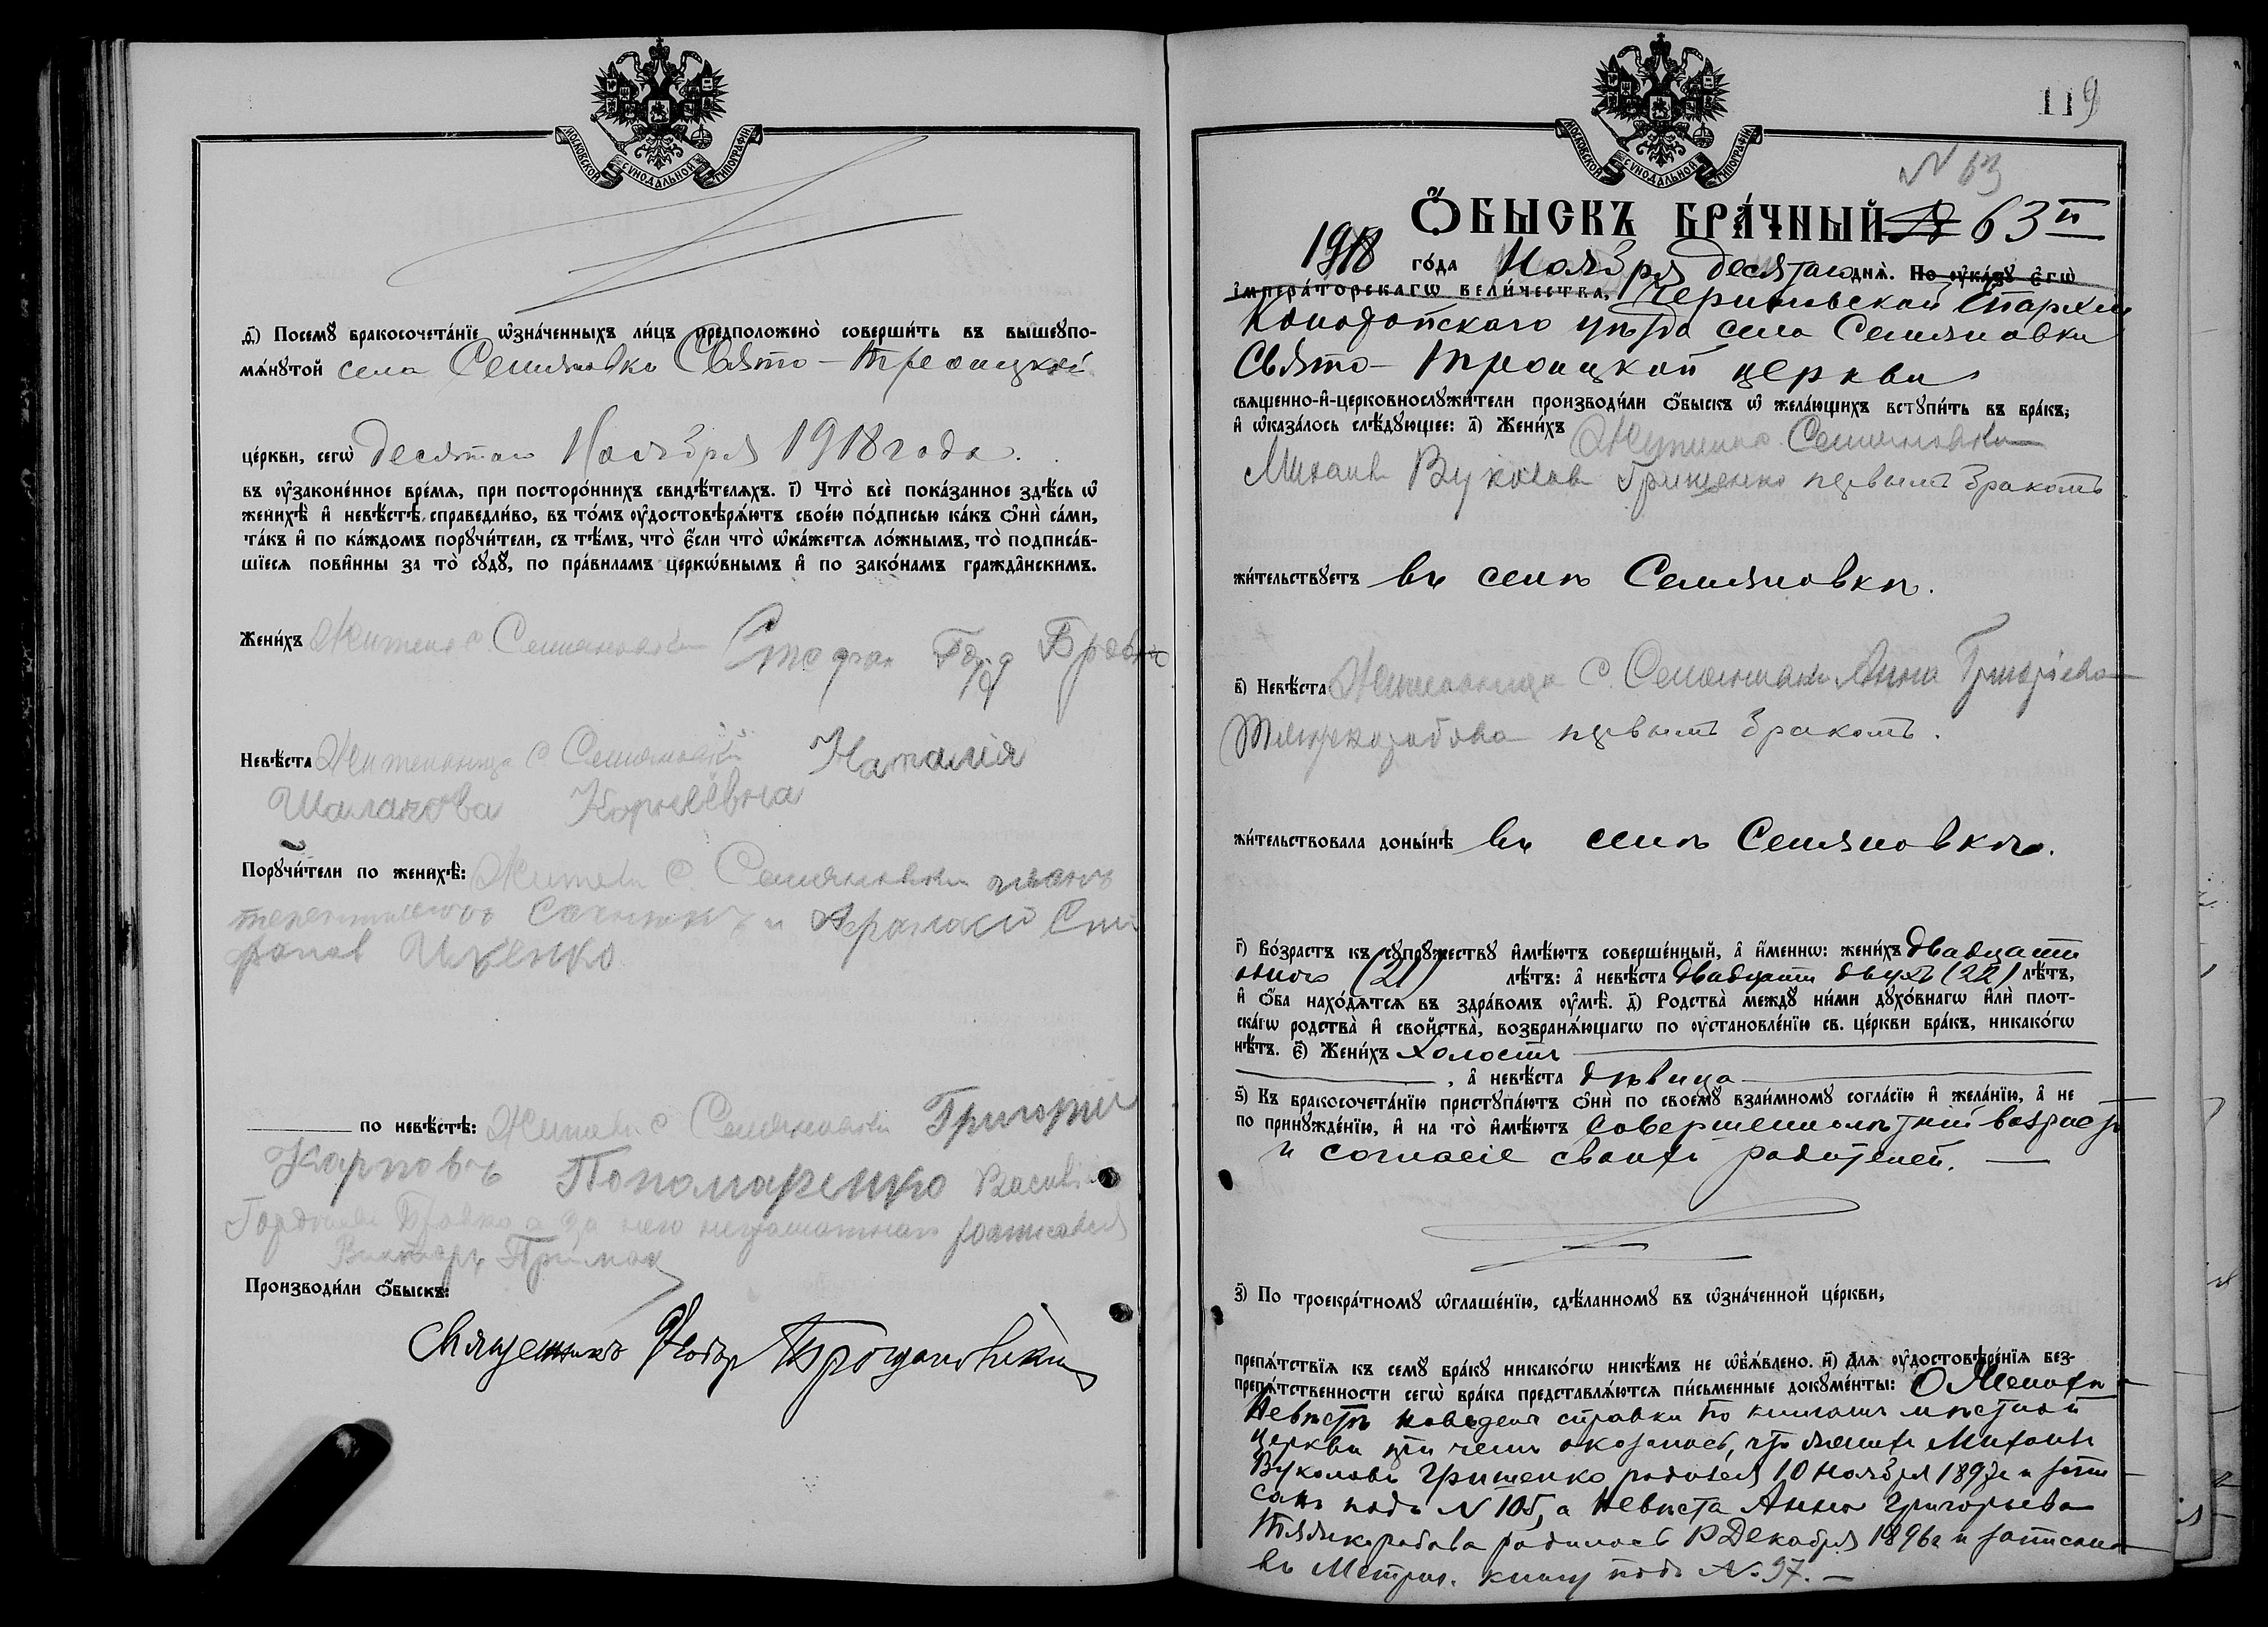 МОСКОВСКОЙ СУНОДАЛЬНОЙ ТИПОГРАФІИ
д҃і) Посемꙋ̀ бракосочета́нїе ѡ҆зна́ченныхъ ли́цъ предположено̀ соверши́ть въ вышеꙋпо-
мѧ́нꙋтой села Семяновки Свято-Троицкой
це́ркви, сегѡ̀ десятаго Ноября 1918 года.
въ ᲂу҆законе́нное вре́мѧ, при посторо́ннихъ свидѣ́телѧхъ. і҃) Что̀ всѐ пока́занное здѣ́сь ѡ҆
женихѣ̀ и҆ невѣ́стѣ, справедли́во, въ то́мъ ᲂу҆достовѣрѧ́ютъ свое́ю по́дписью ка́къ ѻ҆нѝ са́ми,
та́къ и҆ по ка́ждомъ порꙋчи́тели, съ тѣ́мъ, что̀ є҆́сли что̀ ѡ҆ка́жетсѧ ло́жнымъ, то̀ подписа́в-
шїесѧ пови́нны за то̀ сꙋдꙋ̀, по пра́виламъ церкѡ́внымъ и҆ по зако́намъ гражда̑нскимъ.
Жени́хъ Житель с. Семяновки
Невѣ́ста Жительница с Семяновки Наталія
Шалапова Корнеевна
Порꙋчи́тели по женихѣ̀: Жители с. Семяновки
Ищенко
по невѣ́стѣ: Житель с Семяновки Григорій
Карповъ Пономаренко Василій
Гордѣевъ Бровко а за него неграмотнаго росписался
Викторъ Примак
Производи́ли ѻ҆́быскъ:
Священникъ
119
N 63
МОСКОВСКОЙ СУНОДАЛЬНОЙ ТИПОГРАФІИ
Ѻ҆́БЫСКЪ БРА́ЧНЫЙ № 63 й
1918 го́да Ноября десятаго днѧ̀. По ᲂу҆ка́зꙋ є҆гѡ̀
і҆мпера́торскагѡ вели́чества, Черниговской Епархіи
Конотопскаго уѣзда села Семяновки
Свято-Троицкой церкви
свѧщенно-и҆-церковнослꙋжи́тели производи́ли ѻ҆́быскъ ѡ҆ жела́ющихъ встꙋпи́ть въ бра́къ;
и҆ ѡ҆каза́лось слѣ́дꙋющее: а҃) Жени́хъ Житель с. Семяновки
Михаилъ Вуколовъ Грищенко первымъ бракомъ
жи́тельствꙋетъ въ селѣ Семяновкѣ.
в҃) Невѣ́ста Жительница с. Семяновки Анна Григорьева
первымъ бракомъ.
жи́тельствовала доны́нѣ въ селѣ Семяновкѣ.
г҃) Во́зрастъ къ сꙋпрꙋ́жествꙋ и҆мѣ́ютъ соверше́нный, а҆ и҆́меннѡ: жени́хъ двадцати
одного (21) лѣ́тъ: а҆ невѣ́ста двадцати двухъ (22) лѣ́тъ,
и҆ ѻ҆́ба нахо́дѧтсѧ въ здра́вомъ ᲂу҆мѣ̀. д҃) Родства̀ междꙋ̀ ни́ми дꙋхо́внагѡ и҆лѝ плот-
ска́гѡ родства̀ и҆ свойства̀, возбранѧ́ющагѡ по ᲂу҆становле́нїю св. це́ркви бра́къ, никако́гѡ
нѣ́тъ. є҃) Жени́хъ холостъ
, а҆ невѣ́ста дѣвица
ѕ҃) Къ бракосочета́нїю пристꙋпа́ютъ ѻ҆нѝ по своемꙋ̀ взаи́мномꙋ согла́сїю и҆ жела́нїю, а҆ не
по принꙋжде́нїю, и҆ на то̀ и҆мѣ́ютъ совершеннолѣтній возрастъ
и согласіе своихъ родителей.
з҃) По троекра́тномꙋ ѡ҆глаше́нїю, сдѣ́ланномꙋ въ ѡ҆зна́ченной це́ркви,
препѧ́тствїѧ къ семꙋ̀ бра́кꙋ никако́гѡ никѣ́мъ не ѡ҆б̾ѧ́влено. и҃) Длѧ ᲂу҆достовѣре́нїѧ без-
препѧ́тственности сегѡ̀ бра́ка представлѧ́ютсѧ пи́сьменные докꙋме́нты: О женихѣ
невѣстѣ наведена справка по книгамъ мѣстной
церкви при чемъ оказалось, что женихъ Михаилъ
Вуколовъ Грищенко родился 10 Ноября 1897 г и запи
санъ подъ N 105, а невѣста Анна Григорьева
родилась Декабря 1896 г и записана
въ Метрич. книгу подъ № 97.